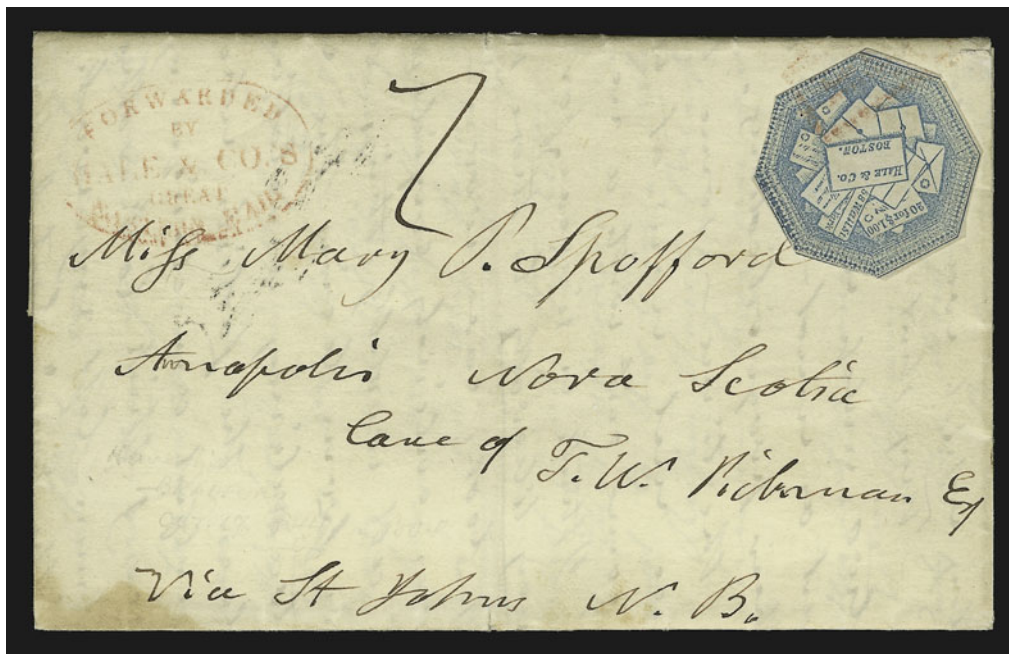 FORWARDED
BY
HALE & CO.'S
GREAT
MAIL
7
HALE & Co.
BOSTON.
20 for $1.00
Miss Mary P. Spofford
Annapolis Nova Scotia
Care of
T. W. Pickman Esq
Via St Johns N. B.